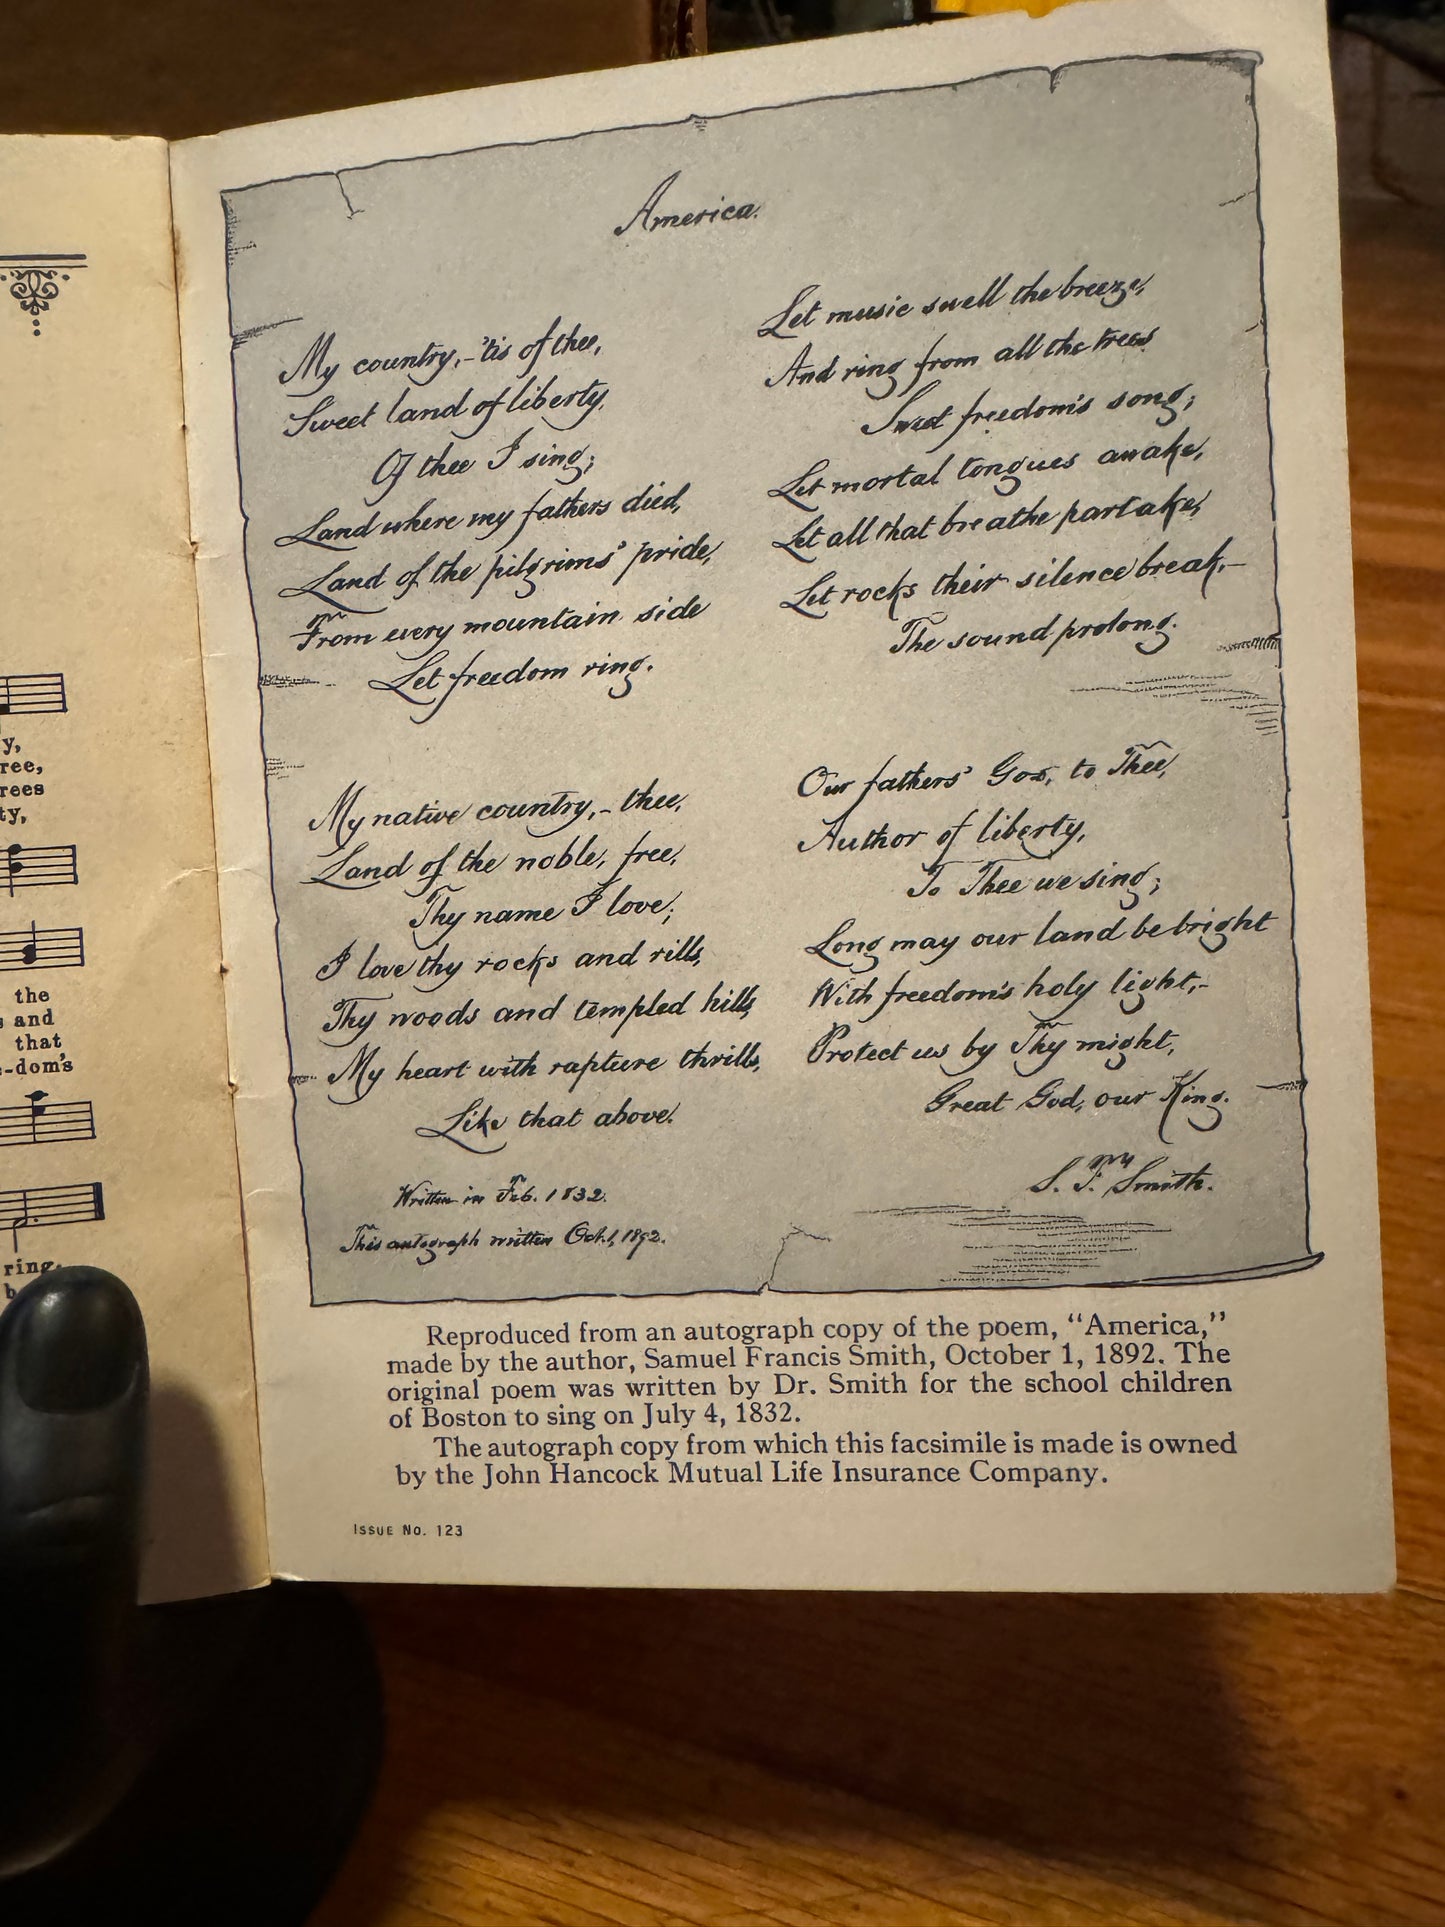 y,
ree,
rees
ty,
the
s and
that
e-dom's
ring.
America.
My country,-'tis of thee,
Sweet land of liberty,
Of thee I sing;
Land where my fathers died,
Land of the pilgrims' pride,
From every mountain side
Let freedom ring.
My native country,- thee,
Land of the noble, free,
Thy name I love;
I love thy rocks and rills,
Thy woods and templed hills,
My heart with rapture thrills,
Like that above.
Written in Feb. 1832.
This autograph written Oct. 1, 1892.
Let music swell the breeze,
And ring from all the trees
Sweet freedom's song;
Let mortal tongues awake,
Let all that breathe partake,
Let rocks their silence break,-
The sound prolong.
Our fathers' God, to Thee,
Author of liberty,
To Thee we sing;
Long may our land be bright
With freedom's holy light,-
Protect us by Thy might,
Great God, our King.
S. F. Smith.
Reproduced from an autograph copy of the poem, "America,"
made by the author, Samuel Francis Smith, October 1, 1892. The
original poem was written by Dr. Smith for the school children
of Boston to sing on July 4, 1832.
The autograph copy from which this facsimile is made is owned
by the John Hancock Mutual Life Insurance Company.
ISSUE NO. 123